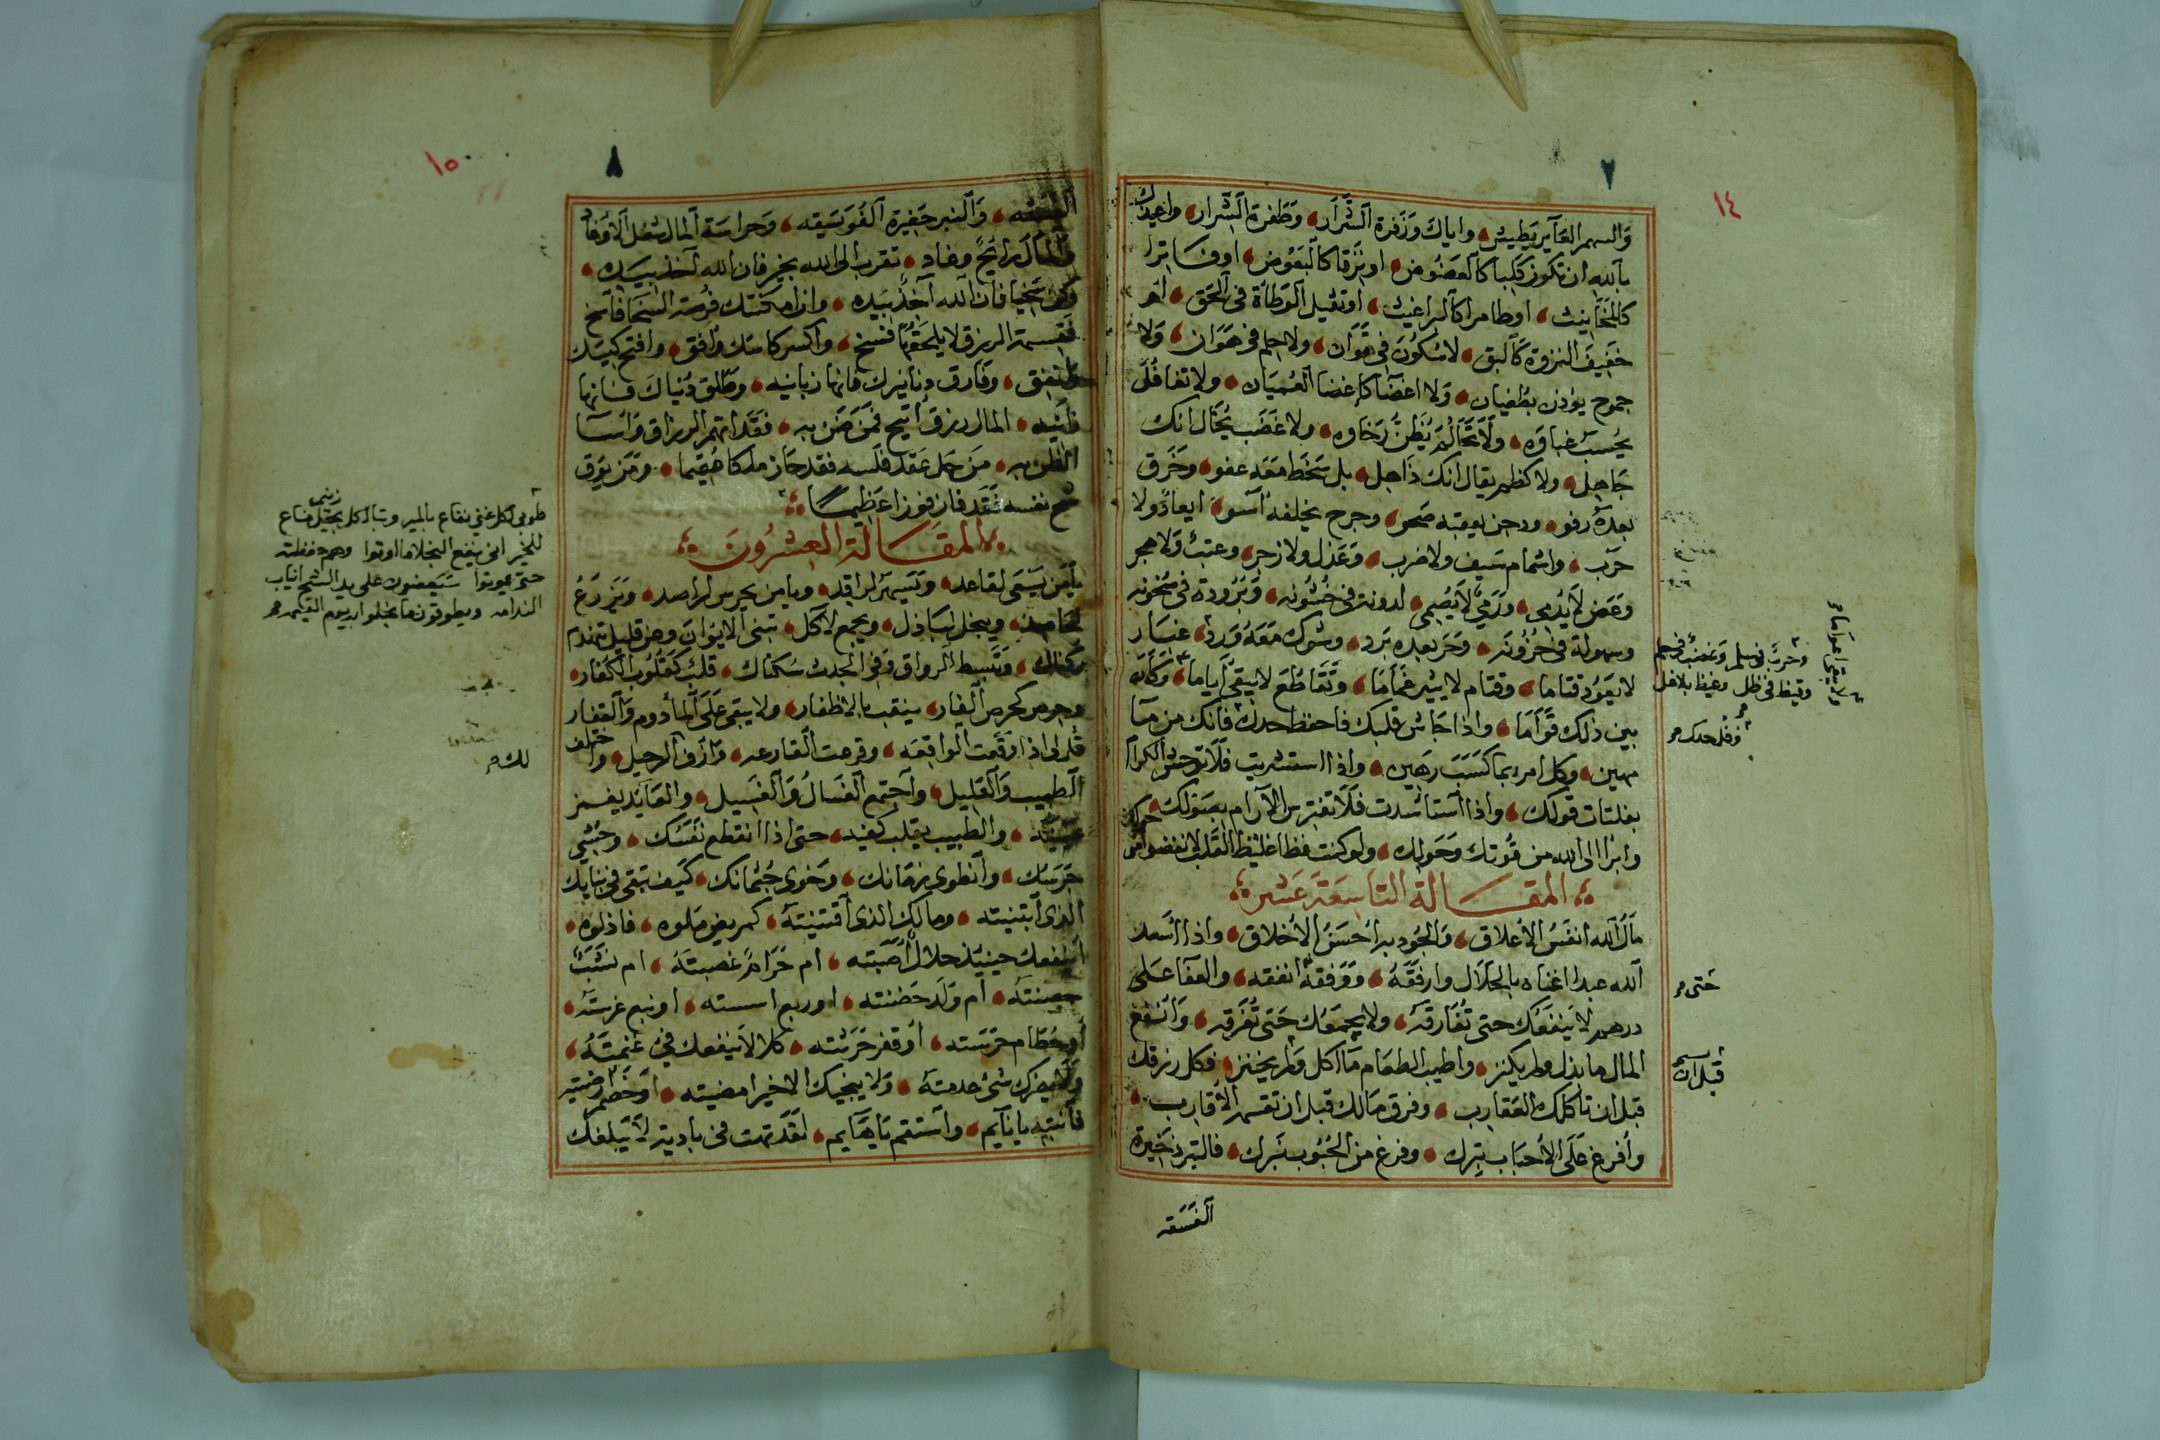 ١٤
٧
والسهم العاير يطيش واياك وزفرة الشرار وطفرة الشرار واعيذك
بالله ان تكون كلبا كالعضوض او نزقا كالبعوض او فاترا
كالمخانيث او طامرا كالبراغيث او ثقيل الوطاة في الحق او
خفيف النزوة كالبق لا سكون في هوان ولا حلم في هوان ولا
جموح يؤذن بطغيان ولا اغضا كاغضا العميان ولا تغافل
يحسب غباوه ولا تحالم يظن رخاوه ولا غضب يخال انك
جاهل ولا كظم يقال انك ذاهل بل سخط معه عفو وخرق
بعده رفو ودجن يعقبه صحو وجرح يخلفه اسو ايعاد ولا
حرب واشمام سيف ولا ضرب وعذل ولا زجر وعتب ولا هجر
وعض لا يدمي ورمي لا يصمي لدونة في خشونه وبرودة في سخونه
وسهولة في حزونه وحر بعده برد وشوك معه ورد غبار
لا يعود قتاما وقتام لا يثير غماما وتقاطع لا يبقى اياما وكان
بين ذلك قواما واذا جاش قلبك فاحفظ حدك فانك من ما
مهين وكل امرء بما كسب رهين واذا استشريت فلا توحش الكرام
بفلتات قولك واذا استاسدت فلا تفترس الآرام بصولك
وابرا الى الله من قوتك وحولك ولو كنت فظا غليظ القلب لانفضوا من حولك
المقالة التاسعة عشرة
مال الله انفس الاعلاق والجود به احسن الاخلاق واذا اسعد
الله عبدا اغناه بالحلال وارفقه ووفقه انفقه والعفا على
درهم لا ينفعك حتى تفارقه ولا يجمعك حتى تفرقه وانفع
المال ما بذل ولم يكنز واطيب الطعام ما اكل ولم يخنز فكل رزقك
قبل ان تاكلك العقارب وفرق مالك قبل ان تقسمه الاقارب
وافرغ على الاحباب تبرك وفرغ من الحبوب نبرك فالتبر ذخيرة
الفسقه
وحرب في سلم وغضب في حلم
وقيظ في ظل وغيظ بلا غل
حتى
قبل ان
١٥
٨
الفسقه والنبر حفيرة الفويسقه وحراسة المال شغل الاوغاد
والمال رائح وغاد تقرب الى الله بخير فان الله آخذ بيديه
وكن سخيا فان الله آخذ بيده وان امكنتك فرصة السخا فاسخ
فقسمة الرزق لا يلحقها فسخ واكسر كاسك وافق وافتح كيسك
وانفق وفارق دنانيرك فانها زبانيه وطلق دنياك فانها
فانيه المال رزق اتيح فمن ضن به فقد اتهم الرزاق واسا
الظن به من حل عقد فلسه فقد حاز ملكا مقيما ومن يوق
شح نفسه فقد فاز فوزا عظيما
المقالة العشرون
يا من يسعى لقاعد ويسهر لراقد ويا من يحرس لراصد ويزرع
لحاصد ويبخل لباذل ويجمع لاكل تبنى الايوان وعن قليل تهدم
اركانك وتبسط الرواق وفي الجدث سكناك قلب كقلوب الكفار
وحرص كحرص الفار ينقب بالاظفار ولا يبقى على المادوم والقفار
قل لي اذا وقعت الواقعه وقرعت القارعه وازف الرحيل واختلف
الطبيب والقليل واجتمع الغسال والغسيل والعايد يغمز
عينيه والطبيب يقلب كفيه حتى اذا انقطع نفسك وخشي
جرسك وانطوى زمانك وخوى جثمانك كيف تبقى في بنايك
الذي ابتنيته ومالك الذي اقتنيته كم ربض ملوه فاذلوه
اينفعك حينئذ حلال اصبته ام حرام غصبته ام نشب
حصنته ام ولد حضنته او ربع اسسته او نبع غرسته
او حطام حرسته او قفر حرثته كلا لا ينفعك في غنمته
ولا يضرك شئ عدمته ولا ينجيك الا خير امضيته او خصم ارضيته
فانتبه يا نايم واستقم يا هايم لقد تهت في بادية لا تبلغك
طوبى لكل غني نفاع بالمير وتبا لكل بخيل مناع
للخير انى ينفع البخلا ما اوتوا وهم
حتى يموتوا سيعضون على يد الشح انياب
الندامه ويطوقون ما بخلوا به يوم القيمه
لك